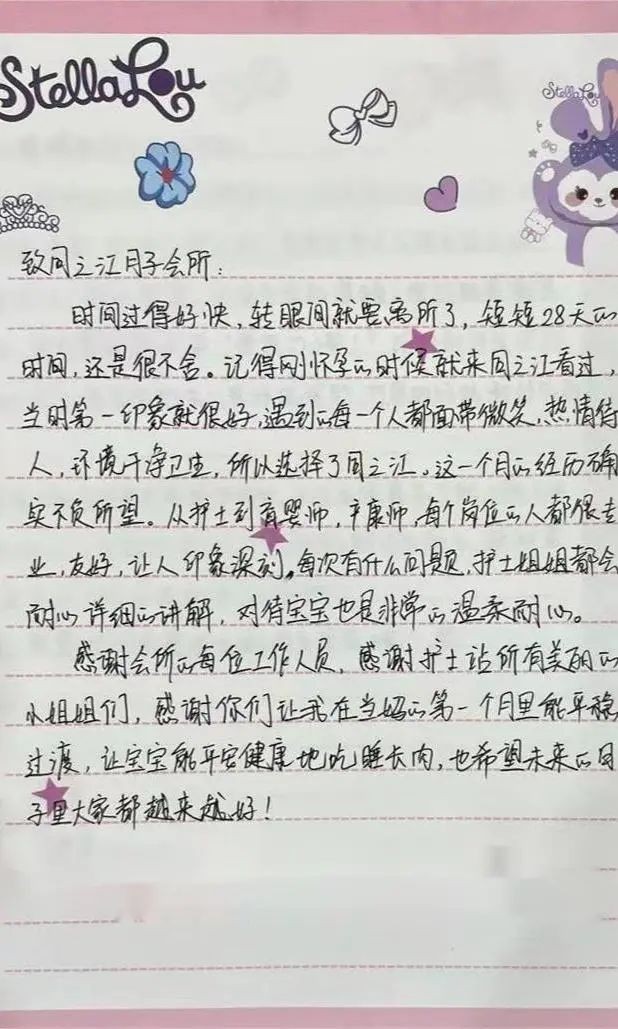 StellaLou
StellaLou
致同之江月子会所:
时间过得好快,转眼间就要离所了,短短28天的
时间,还是很不舍。记得刚怀孕的时候就来同之江看过,
当时第一印象就很好,遇到的每一个人都面带微笑,热情待
人,环境干净卫生,所以选择了同之江。这一个月的经历确
实不负所望。从护士到育婴师,产康师,每个岗位的人都很专
业,友好,让人印象深刻。每次有什么问题,护士姐姐都会
耐心详细的讲解,对待宝宝也是非常的温柔耐心。
感谢会所的每位工作人员,感谢护士站所有美丽的
小姐姐们,感谢你们让我在当妈的第一个月里能平稳
过渡,让宝宝能平安健康地吃睡长肉,也希望未来的日
子里大家都越来越好!